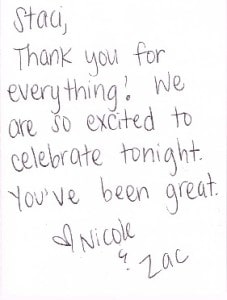 Staci,
Thank you for
everything! We
are so excited to
celebrate tonight.
You've been great.
♡ Nicole
& Zac